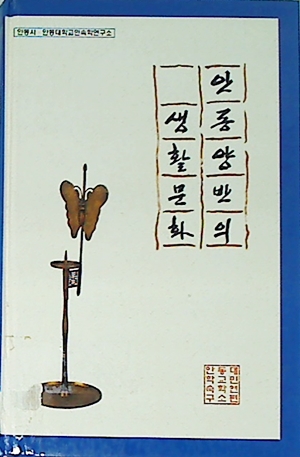 안동시 안동대학교민속학연구소
안동양반의
생활문화
안동대
학교민
속학연
구소편